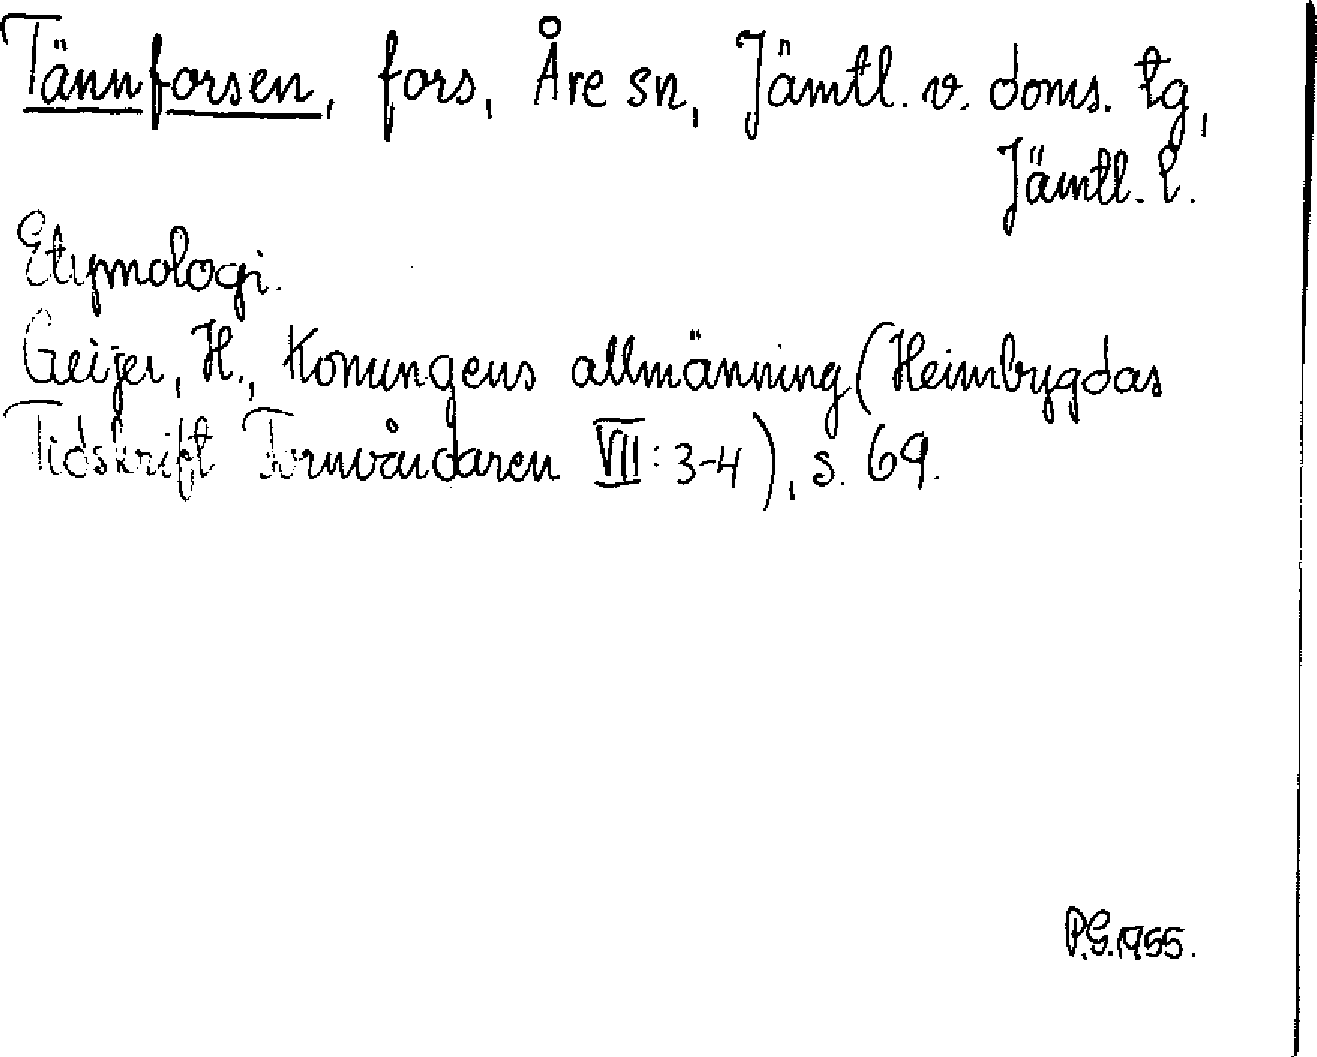 Tännforsen, fors, Åre sn, Jämtl. v. doms. tg,
Jämtl. l.
Etymologi.
Geijer, H., Konungens allmänning (Heimbygdas
Tidskrift Fornvårdaren VII: 3-4), s. 69.
P.G. 1955.